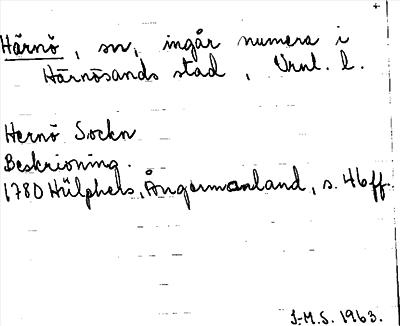 Härnö, sn, ingår numera i
Härnösands stad, Vrnl. l.
Hernö Sockn
Beskrivning.
1780 Hülphers, Ångermanland, s. 46 ff.
I-M.S. 1963.